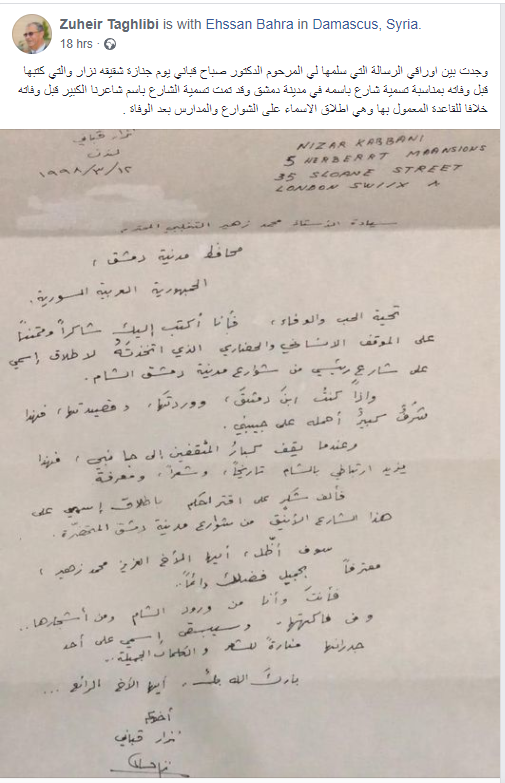 Zuheir Taghlibi is with Ehssan Bahra in Damascus, Syria.
18 hrs ·
وجدت بين اوراقي الرسالة التي سلمها لي المرحوم الدكتور صباح قباني يوم جنازة شقيقه نزار والتي كتبها
قبل وفاته بمناسبة تسمية شارع باسمه في مدينة دمشق وقد تمت تسمية الشارع باسم شاعرنا الكبير قبل وفاته
خلافا للقاعدة المعمول بها وهي اطلاق الاسماء على الشوارع والمدارس بعد الوفاة .
نزار قباني
لندن
١٩٩٨/٣/١٢
NIZAR KABBANI
5 HERBERRT MAANSIONS
35 SLOANE STREET
LONDON SW1X
سيادة الأستاذ محمد زهير التغلبي
محافظ مدينة دمشق ،
الجمهورية العربية السورية .
تحية الحب والوفاء ، فأنا أكتب إليك شاكراً وممتناً
على الموقف الإنساني والحضاري الذي اتخذته لاطلاق إسمي
على شارع رئيسي من شوارع مدينة دمشق الشام .
وإذا كنتُ ابنَ دمشق ، ووردتَها ، وقصيدتها ، فهذا
شرفٌ كبيرٌ أحمله على جبيني .
وعندما يقف كبارُ المثقفين إلى جانبي ، فهذا
يزيد ارتباطي بالشام تاريخاً ، وشعراً ، ومعرفة
فألف شكر على اقتراحكم باطلاق إسمي على
هذا الشارع الأنيق من شوارع مدينة دمشق
سوف أظلُّ ، أيها الأخ العزيز محمد زهير ،
معترفاً بجميل فضلك دائماً ..
فأنتَ وأنا من ورود الشام ومن أشجارها ..
ومن فاكهتها . وسيبقى إسمي على أحد
جدرانها منارةً للشعر والكلمات الجميلة ..
باركَ الله بك ، أيها الأخ الرائع ...
أخوك
نزار قباني